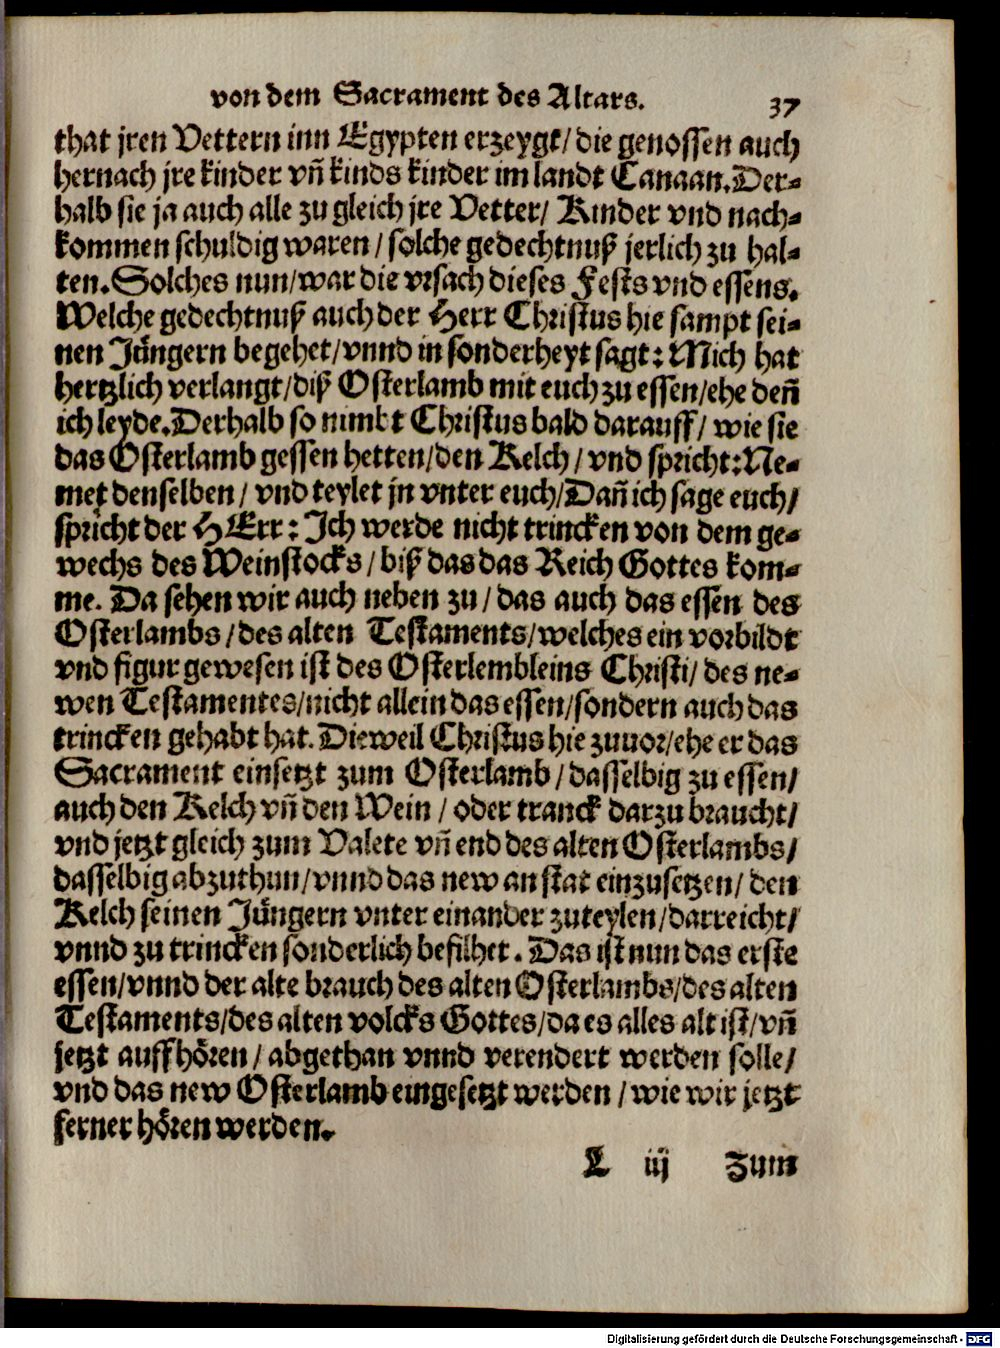 von dem Sacrament des Altars. 37
that jren Vettern inn Egypten erzeygt/ die genossen auch
hernach jre kinder vñ kinds kinder im landt Canaan. Der-
halb sie ja auch alle zu gleich jre Vetter/ Kinder vnd nach-
kommen schuldig waren / solche gedechtnuß jerlich zu hal-
ten. Solches nun/war die vrsach dieses Fests vnd essens.
Welche gedechtnuß auch der Herr Christus hie sampt sei-
nen Jüngern begehet/vnnd in sonderheyt sagt: Mich hat
hertzlich verlangt/diß Osterlamb mit euch zu essen/ehe deñ
ich leyde. Derhalb so nimbt Christus bald darauff/ wie sie
das Osterlamb gessen hetten/den Kelch / vnd spricht: Ne-
met denselben / vnd teylet jn vnter euch/Dañ ich sage euch/
spricht der HErr: Ich werde nicht trincken von dem ge-
wechs des Weinstocks / biß das das Reich Gottes kom-
me. Da sehen wir auch neben zu / das auch das essen des
Osterlambs /des alten Testaments/welches ein vorbildt
vnd figur gewesen ist des Osterlembleins Christi/ des ne-
wen Testamentes/nicht allein das essen/sondern auch das
trincken gehabt hat. Dieweil Christus hie zuuor/ehe er das
Sacrament einsetzt zum Osterlamb / dasselbig zu essen/
auch den Kelch vñ den Wein / oder tranck darzu braucht/
vnd jetzt gleich zum Valete vñ end des alten Osterlambs/
dasselbig abzuthun/vnnd das new an stat einzusetzen/ den
Kelch seinen Jüngern vnter einander zuteylen/darreicht/
vnnd zu trincken sonderlich befilhet. Das ist nun das erste
essen/vnnd der alte brauch des alten Osterlambs/des alten
Testaments/des alten volcks Gottes/da es alles alt ist/vñ
jetzt auffhören / abgethan vnnd verendert werden solle/
vnd das new Osterlamb eingesetzt werden / wie wir jetzt
ferner hören werden.
L iij Zum
Digitalisierung gefördert durch die Deutsche Forschungsgemeinschaft - DFG